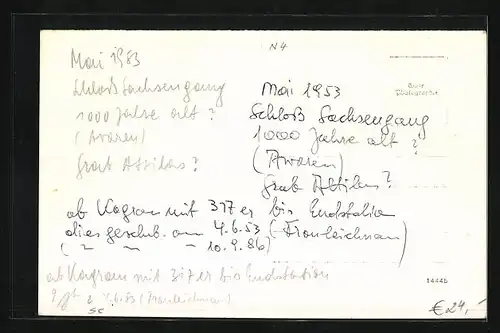 N4
Mai 1983
Schloß Sachsengang
1000 Jahre alt?
(Awaren)
Grab Attilas?
Mai 1953
Schloß Sachsengang
1000 Jahre alt?
(Awaren)
Grab Attilas?
ab Kagran mit 317er bis Endstation
dies geschah am 4.6.53 (Fronleichnam)
( " " " 10.9.86)
ab Kagran mit 317er bis Endstation
4.6.83 (Fronleichnam)
sc
14445
€ 24,-